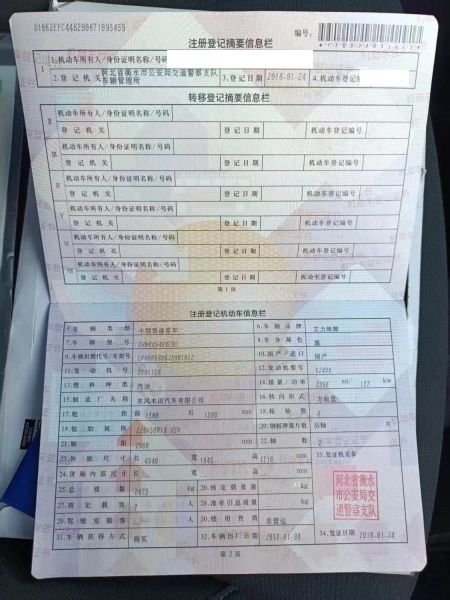 注册登记摘要信息栏
编号:
1.机动车所有人/身份证明名称/号码
2.登记机关 河北省衡水市公安局交通警察支队车辆管理所 3.登记日期 2018-01-24 4.机动车登记编号
转移登记摘要信息栏
机动车所有人/身份证明名称/号码
登记机关 登记日期 机动车登记编号
机动车所有人/身份证明名称/号码
登记机关 登记日期 机动车登记编号
机动车所有人/身份证明名称/号码
登记机关 登记日期 机动车登记编号
机动车所有人/身份证明名称/号码
登记机关 登记日期 机动车登记编号
机动车所有人/身份证明名称/号码
登记机关 登记日期 机动车登记编号
机动车所有人/身份证明名称/号码
登记机关 登记日期 机动车登记编号
第1页
注册登记机动车信息栏
5.车辆类型 小型普通客车 6.车辆品牌 艾力绅牌
7.车辆型号 8.车身颜色 黑
9.车辆识别代号/车架号 10.国产/进口 国产
11.发动机号 12.发动机型号
13.燃料种类 汽油 14.排量/功率 ml/ kw
15.制造厂名称 东风本田汽车有限公司 16.转向形式 方向盘
17.轮距 前 1560 后 mm 18.轮胎数 4
19.轮胎规格 20.钢板弹簧片数 后轴 片
21.轴距 2900 mm 22.轴数 2
23.外廓尺寸 长 宽 1845 高 1710 mm 33.发证机关章
24.货厢内部尺寸 长 宽 高 mm
25.总质量 2475 kg 26.核定载质量 kg
27.核定载客 人 28.准牵引总质量 kg
29.驾驶室载客 人 30.使用性质 非营运
31.车辆获得方式 购买 32.车辆出厂日期 34.发证日期 2018-01-24
河北省衡水
市公安局交
通警察支队
第2页